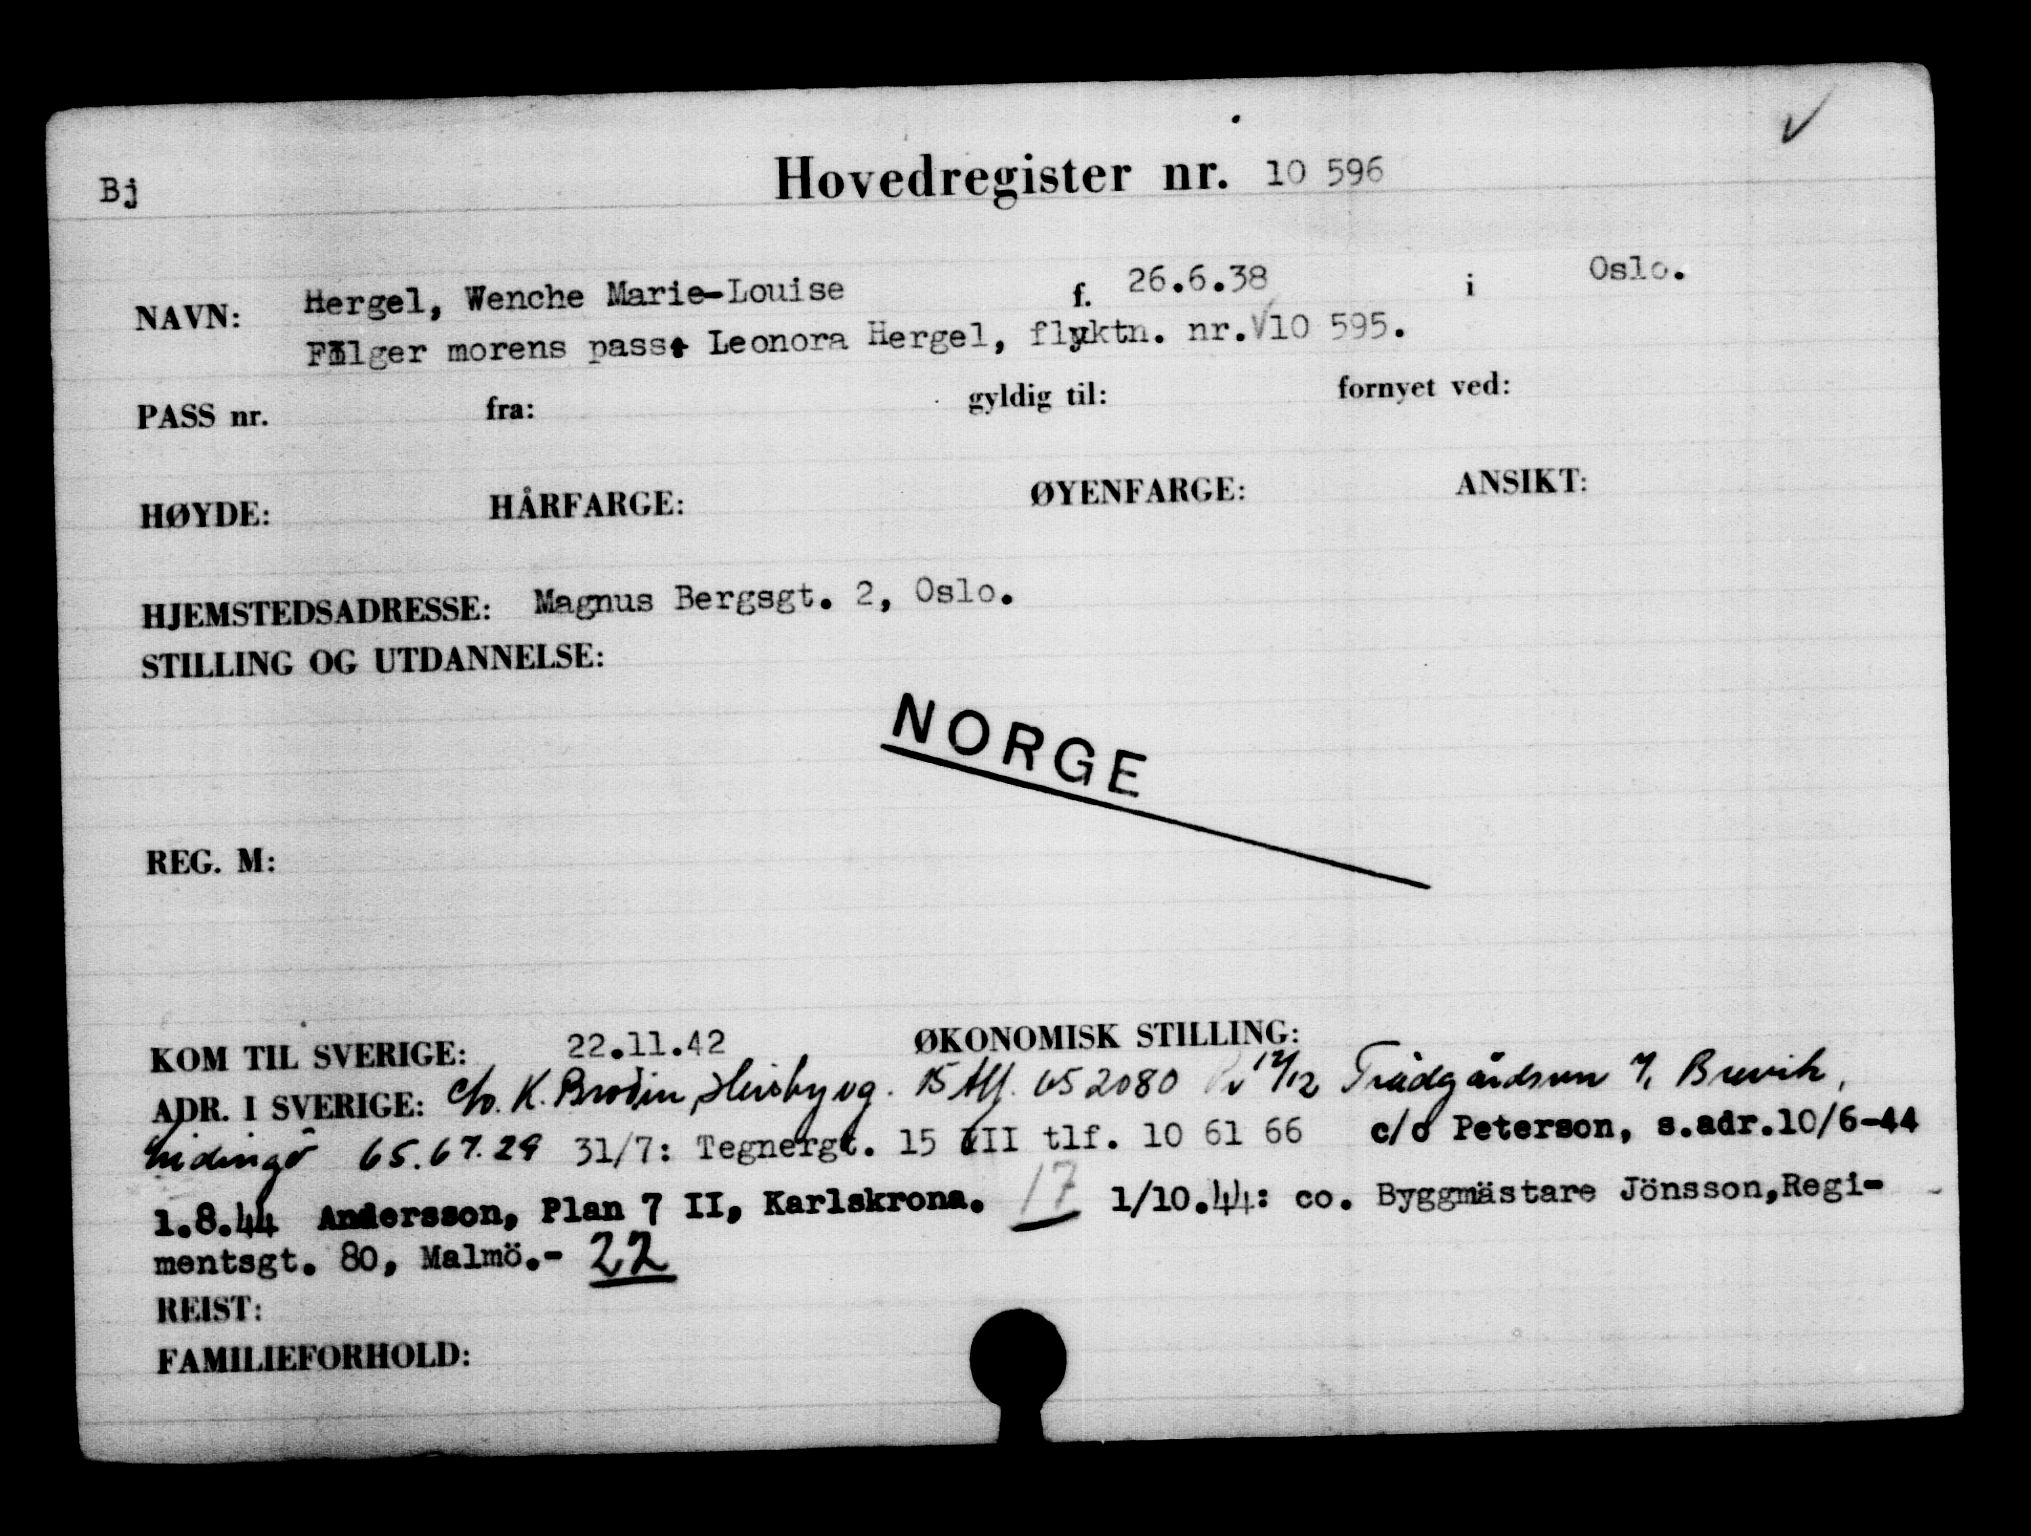 Bj
Hovedregister nr. 10 596
NAVN: Hergel, Wenche Marie-Louise f. 26.6.38 i Oslo.
Følger morens pass: Leonora Hergel, flyktn. nr. √10 595.
PASS nr. fra: gyldig til: fornyet ved:
HØYDE: HÅRFARGE: ØYENFARGE: ANSIKT:
HJEMSTEDSADRESSE: Magnus Bergsgt. 2, Oslo.
STILLING OG UTDANNELSE:
NORGE
REG. M:
KOM TIL SVERIGE: 22.11.42 ØKONOMISK STILLING:
ADR. I SVERIGE: c/o. K. Brodin, 15 tlf. 652080 12/12 Brevik,
Lidingö 65.67.29 31/7: Tegnergt. 15 III tlf. 10 61 66 c/o Peterson, s.adr.10/6-44
1.8.44 Andersson, Plan 7 II, Karlskrona. 17 1/10.44: co. Byggmästare Jönsson,Regi-
mentsgt. 80, Malmö.- 22
REIST:
FAMILIEFORHOLD: